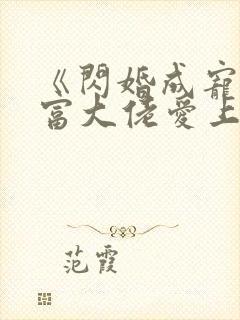 《閃婚成寵
富大佬愛上
范霞